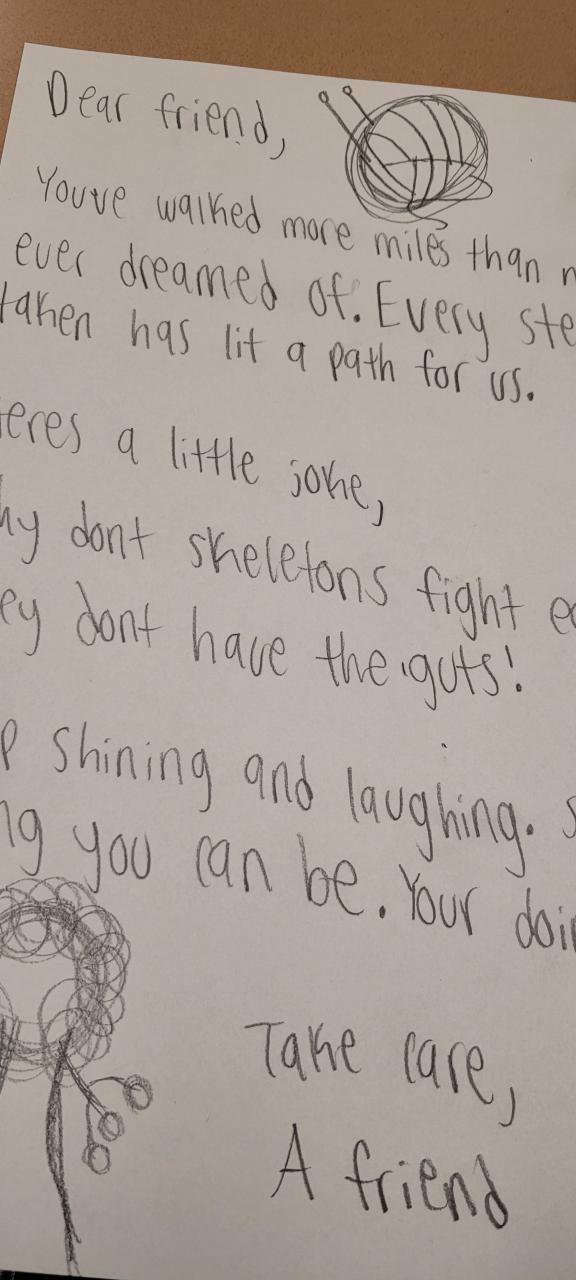 Dear friend,
Youve walked more miles than
ever dreamed of. Every
taken has lit a path for us.
a little joke,
dont skeletons fight
dont have the guts!
shining and laughing.
you can be. Your
Take care,
A friend